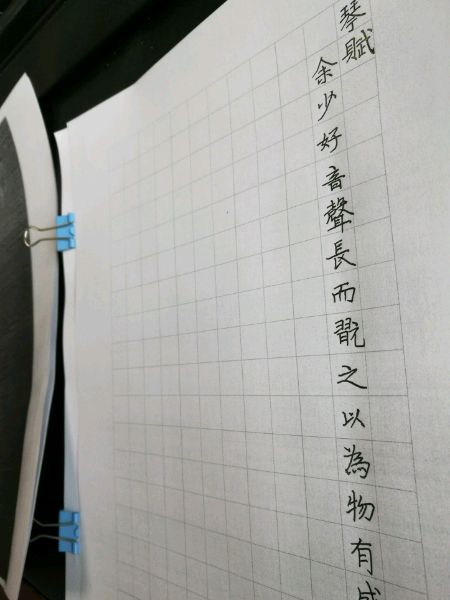 琴賦
余少好音聲長而翫之以為物有